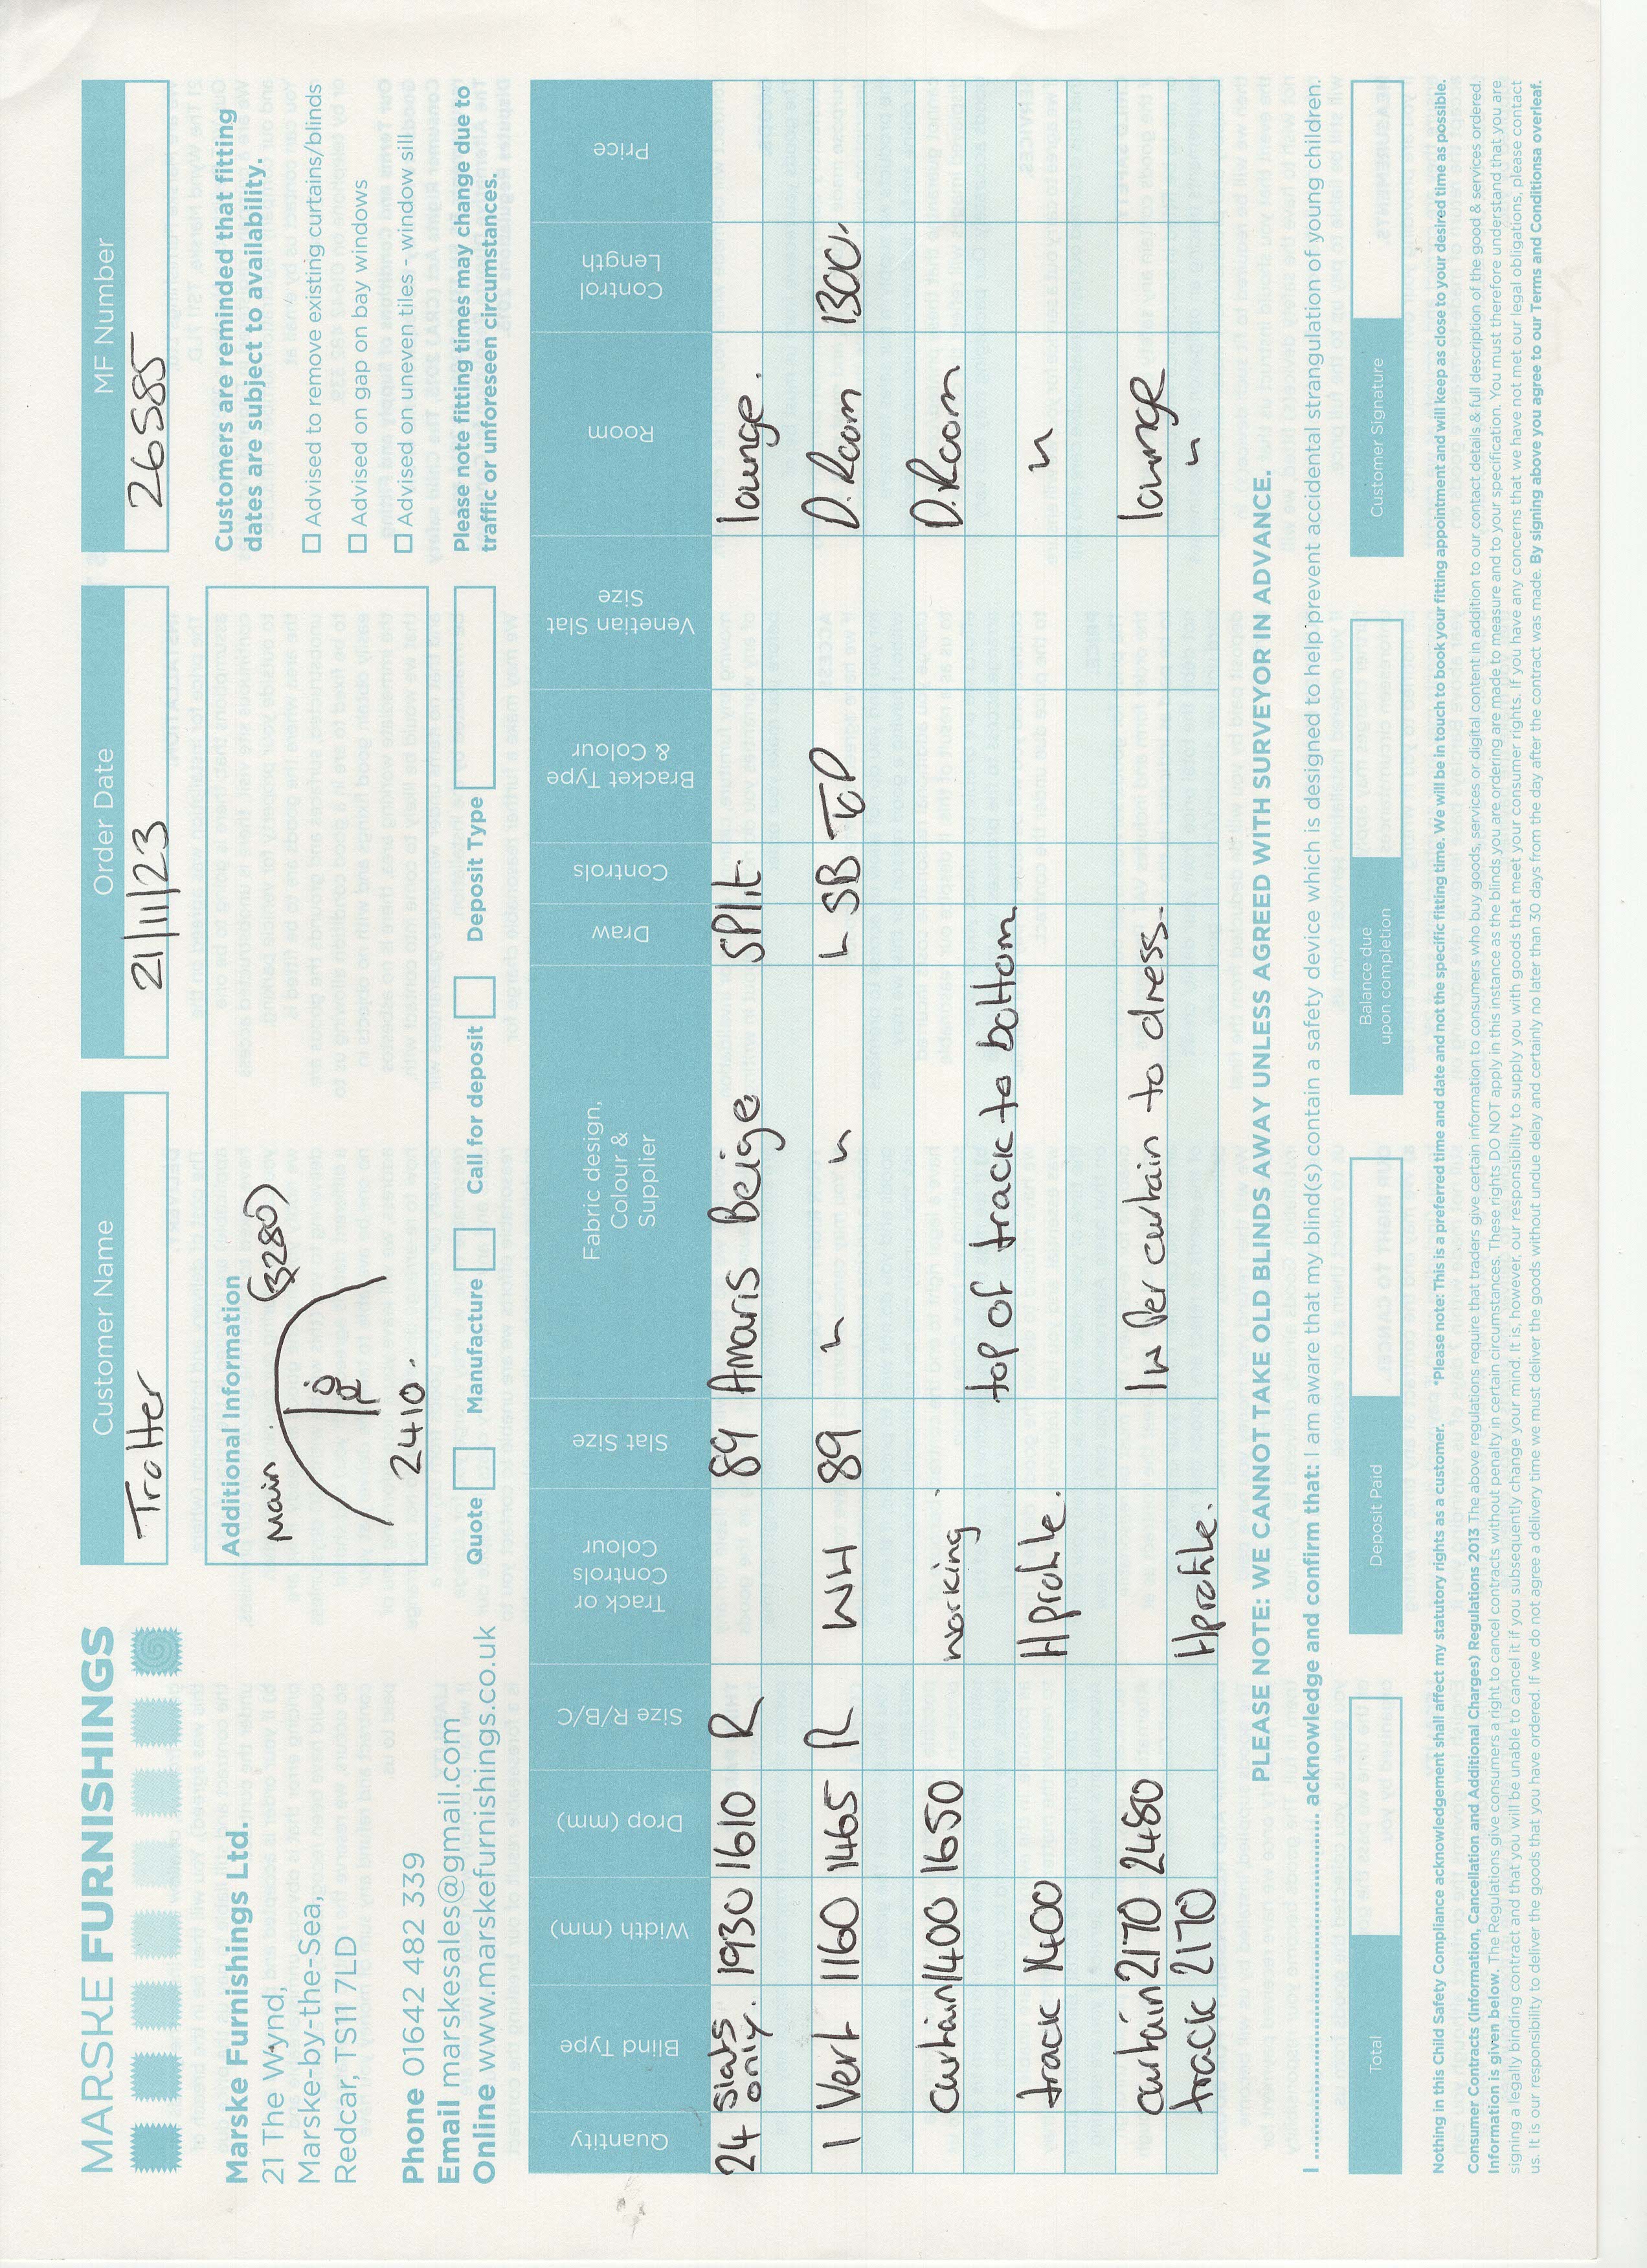 MARSKE FURNISHINGS
Marske Furnishings Ltd.
21 The Wynd,
Marske-by-the-Sea,
Redcar, TS11 7LD
Phone 01642 482 339
Email marskesales@gmail.com
Online www.marskefurnishings.co.uk
Customer Name
Trotter
Order Date
21/11/23
MF Number
26585
Additional Information
Main (3280)
2410.
Customers are reminded that fitting
dates are subject to availability.
Advised to remove existing curtains/blinds
Advised on gap on bay windows
Advised on uneven tiles - window sill
Quote Manufacture Call for deposit Deposit Type
Please note fitting times may change due to
traffic or unforeseen circumstances.
Quantity Blind Type Width (mm) Drop (mm) Size R/B/C Track or Controls Colour Slat Size Fabric design, Colour & Supplier Draw Controls Bracket Type & Colour Venetian Slat Size Room Control Length Price
24 Slats only. 1930 1610 R 89 Amouris Beige SPlit. lounge.
1 Vert 1160 1465 R WH 89 " " L SB TOP D.Room 1300.
curtain 1400 1650 working. D.Room
top of track to bottom.
track 1400 H profile. "
curtain 2170 2480 1w Per curtain to dress. lounge
track 2170 Hprofile. "
PLEASE NOTE: WE CANNOT TAKE OLD BLINDS AWAY UNLESS AGREED WITH SURVEYOR IN ADVANCE.
I .......................................... acknowledge and confirm that: I am aware that my blind(s) contain a safety device which is designed to help prevent accidental strangulation of young children.
Total Deposit Paid Balance due upon completion Customer Signature
Nothing in this Child Safety Compliance acknowledgement shall affect my statutory rights as a customer. *Please note: This is a preferred time and date and not the specific fitting time. We will be in touch to book your fitting appointment and will keep as close to your desired time as possible.
Consumer Contracts (Information, Cancellation and Additional Charges) Regulations 2013 The above regulations require that traders give certain information to consumers who buy goods, services or digital content in addition to our contact details & full description of the good & services ordered.
Information is given below. The Regulations give consumers a right to cancel contracts without penalty in certain circumstances. These rights DO NOT apply in this instance as the blinds you are ordering are made to measure and to your specification. You must therefore understand that you are
signing a legally binding contract and that you will be unable to cancel it if you subsequently change your mind. It is, however, our responsibility to supply you with goods that meet your consumer rights. If you have any concerns that we have not met our legal obligations, please contact
us. It is our responsibility to deliver the goods that you have ordered. If we do not agree a delivery time we must deliver the goods without undue delay and certainly no later than 30 days from the day after the contract was made. By signing above you agree to our Terms and Conditionsa overleaf.